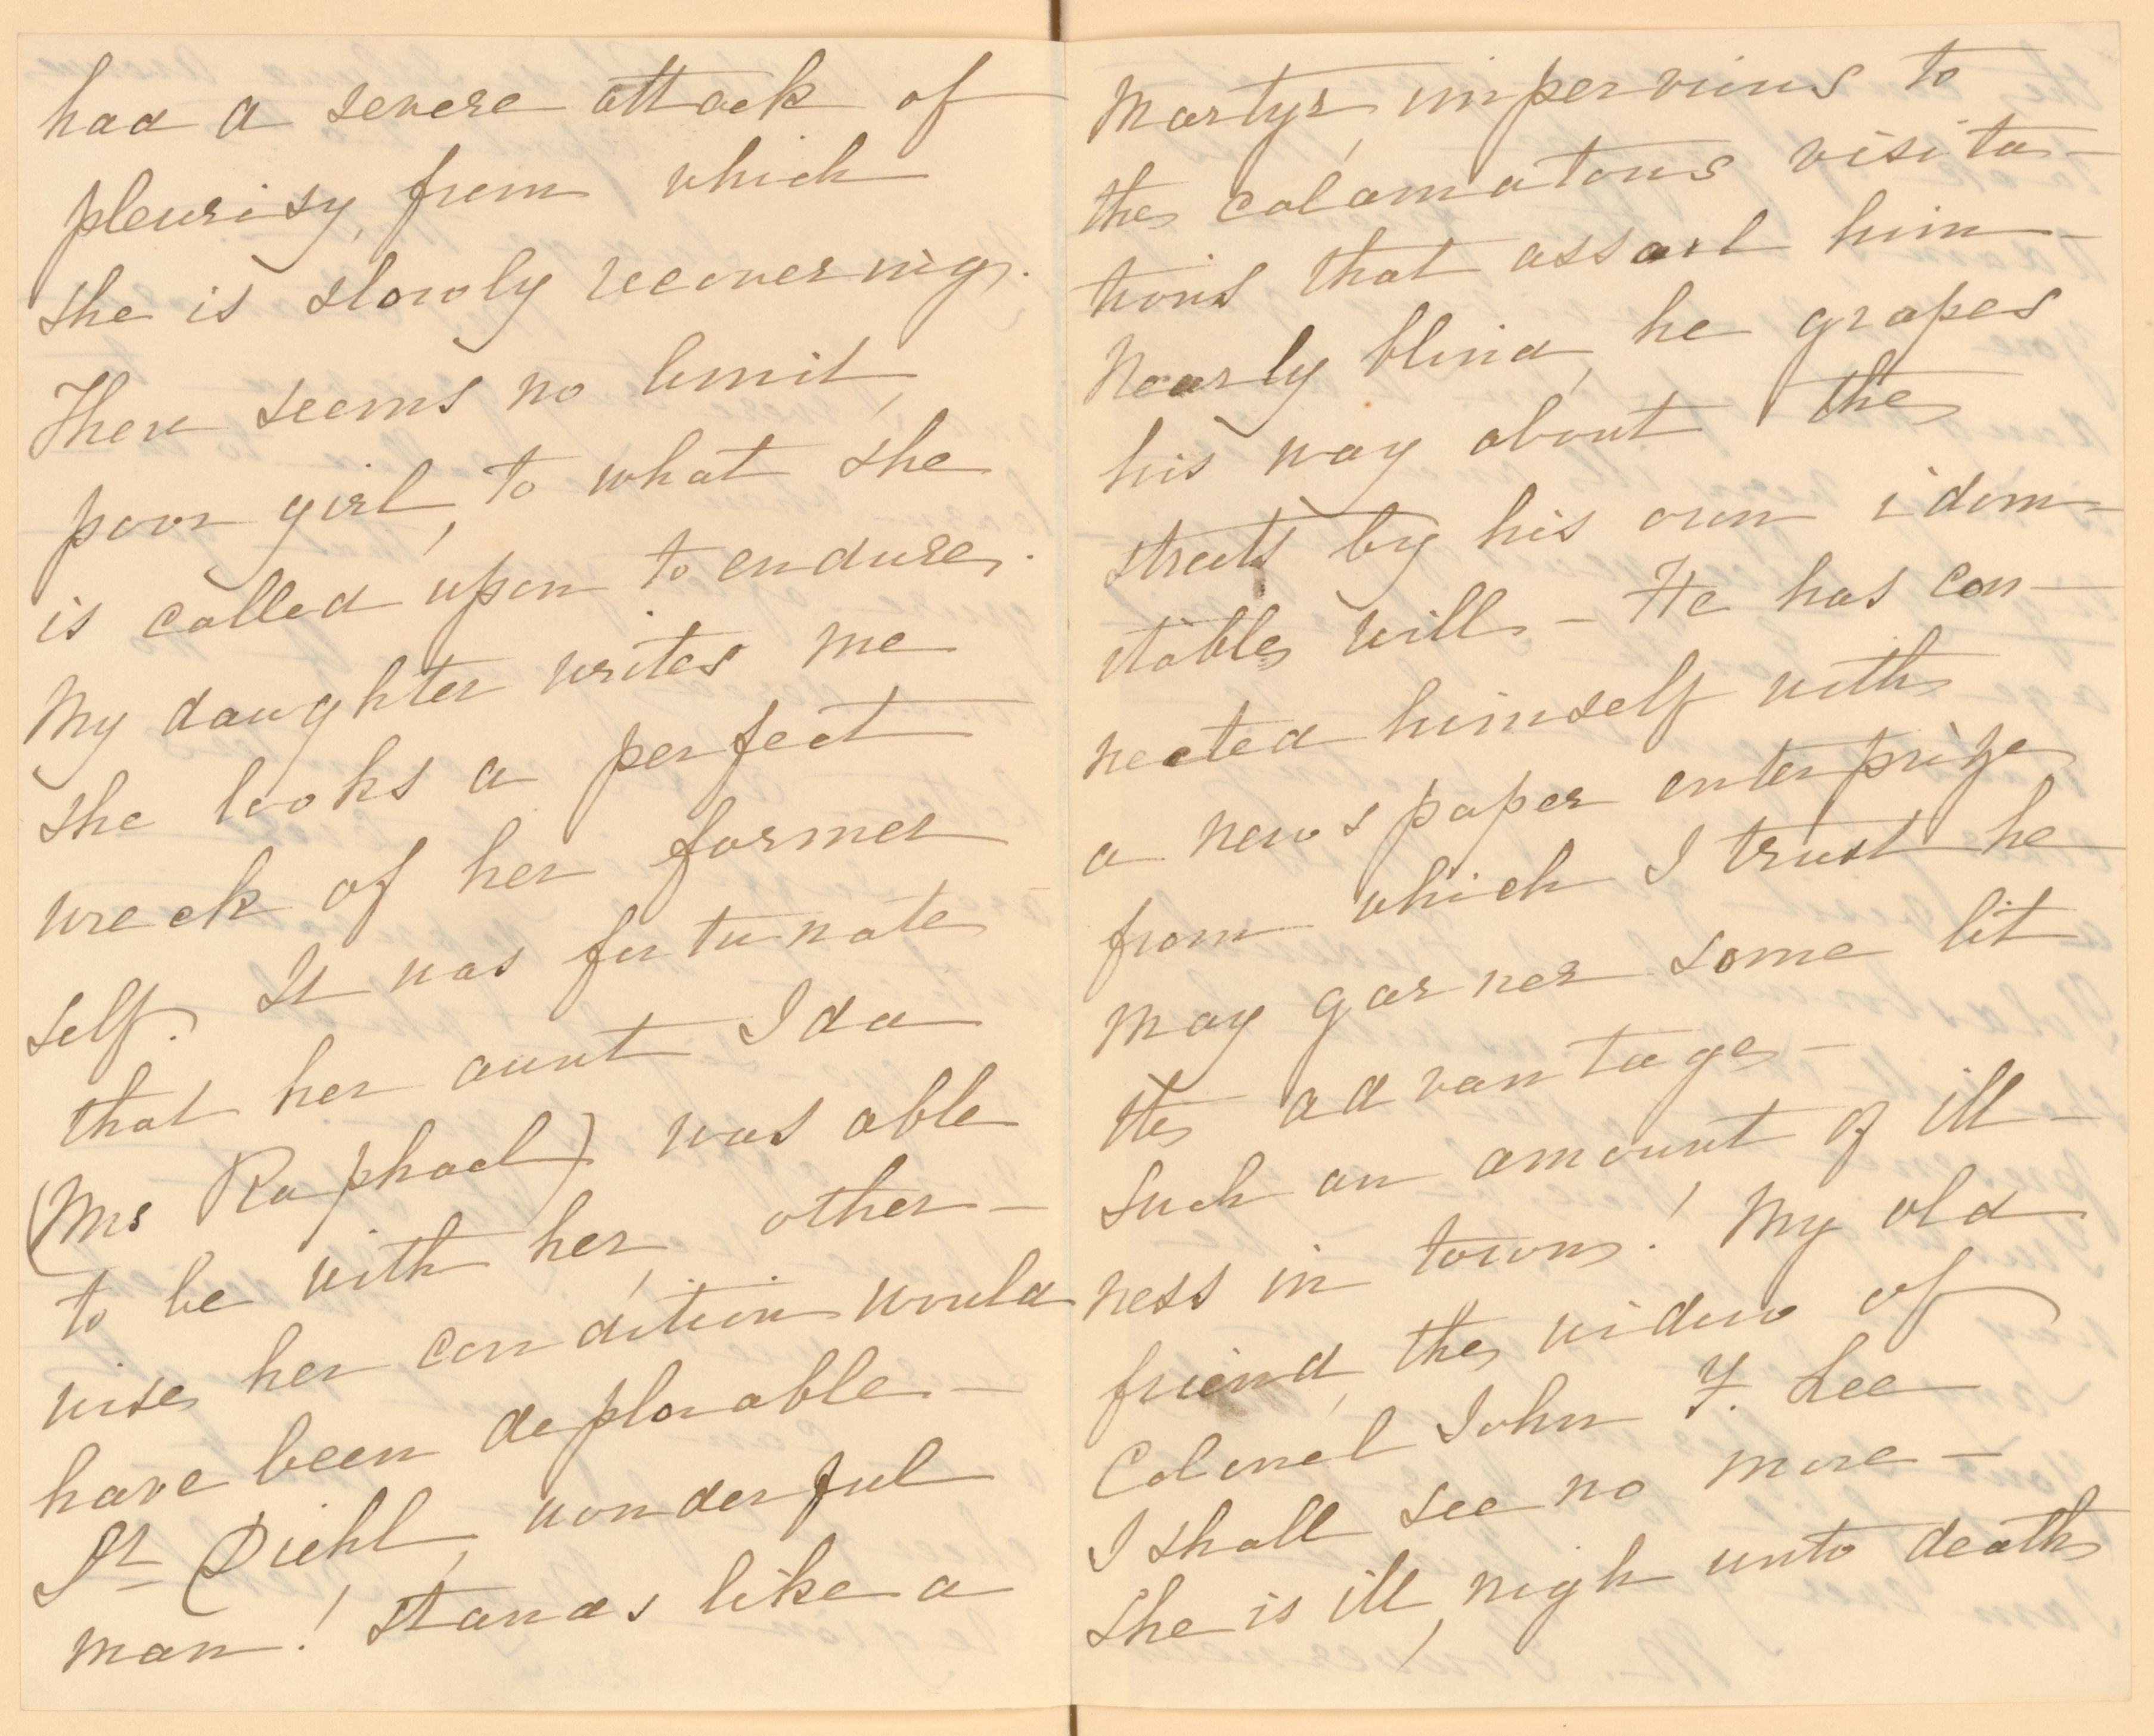 had a severe attack of
pleurisy, from which
she is slowly recovering.
There seems no limit,
poor girl, to what she
is called upon to endure.
My daughter writes me
she looks a perfect
wreck of her former
self. It was fortunate
that her aunt Ida
(Mrs Raphael) was able
to be with her, other-
wise her condition would
have been deplorable-
St Diehl, wonderful
man! stands like a
Martyr, impervious to
the calamatous visita-
tions that assail him-
Nearly blind, he gropes
his way about the
streets by his own idom-
itable will - He has con-
nected himself with
a newspaper enterprize
from which I trust he
may garner some lit
tle advantage-
Such an amount of ill-
ness in town! My old
friend, the widow of
Colonel John F. Lee
I shall see no more-
She is ill, nigh unto death